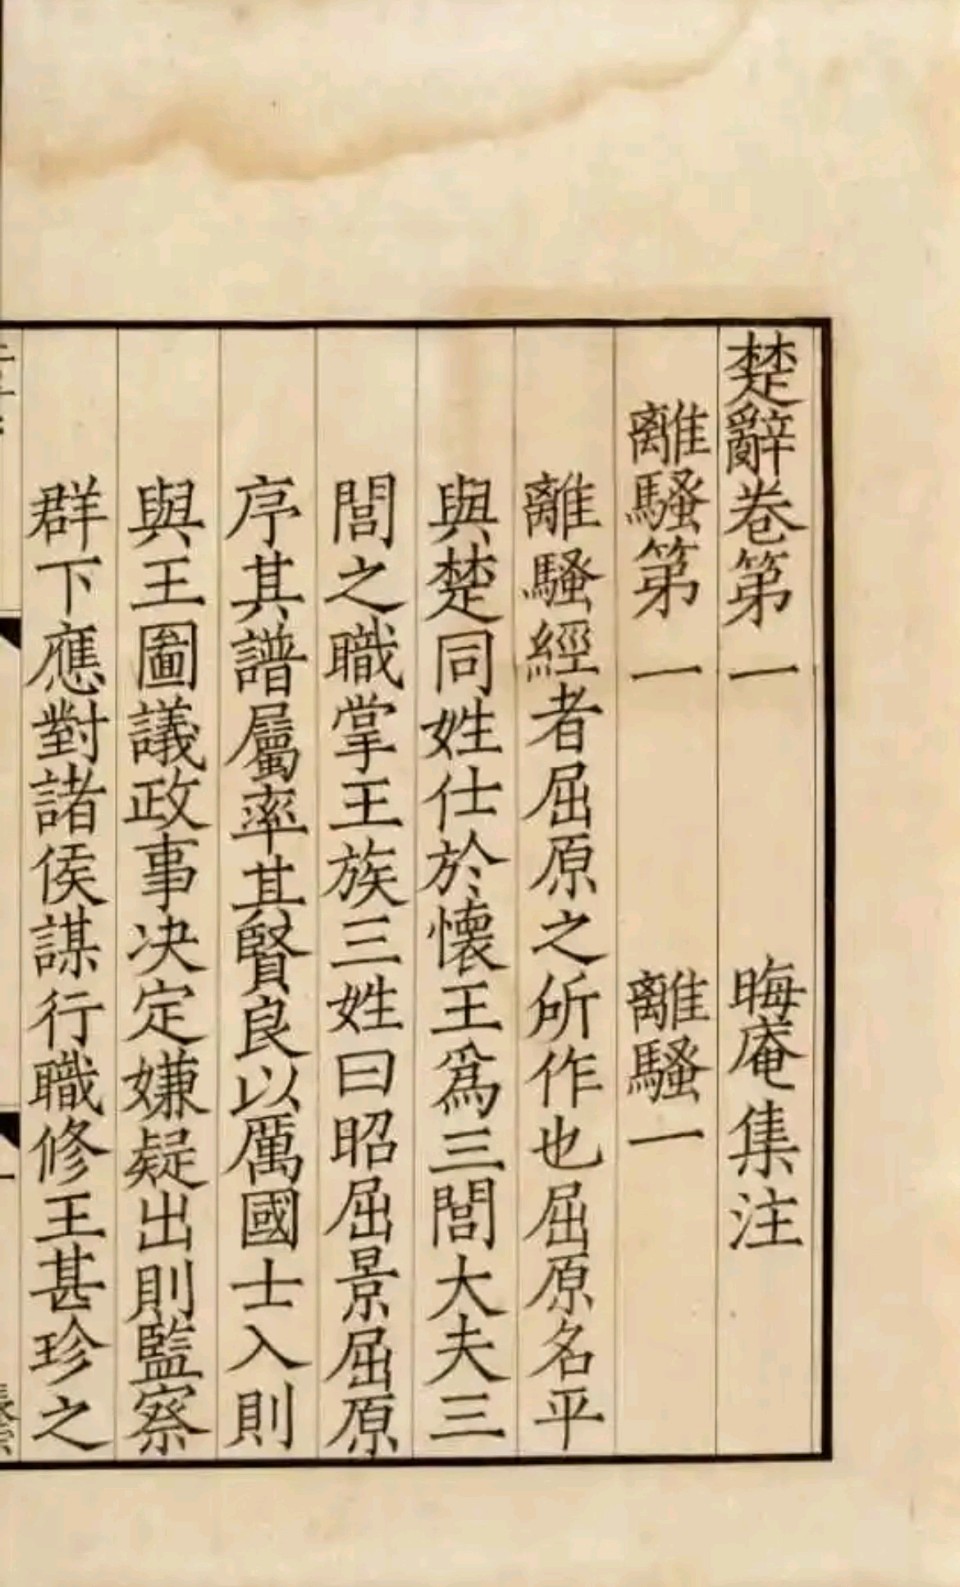 楚辭卷第一 晦庵集注
離騷第一 離騷一
離騷經者屈原之所作也屈原名平
與楚同姓仕於懷王爲三閭大夫三
閭之職掌王族三姓曰昭屈景屈原
序其譜屬率其賢良以厲國士入則
與王圖議政事决定嫌疑出則監察
群下應對諸侯謀行職修王甚珍之